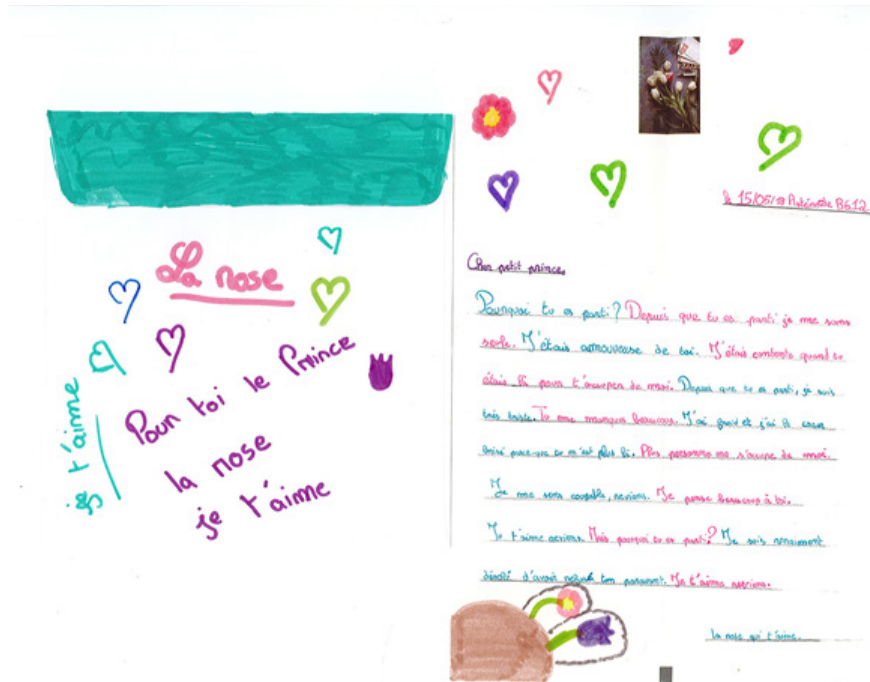 La rose
je t'aime
Pour toi le Prince
la rose
je t'aime
le 15/06/18 Astéroïde B612
Cher petit prince,
Pourquoi tu es parti ? Depuis que tu es parti je me sens
seule. J'étais amoureuse de toi. J'étais contente quand tu
étais là pour t'occuper de moi. Depuis que tu es parti, je suis
très triste. Tu me manques beaucoup. J'ai froid et j'ai le cœur
brisé parce que tu n'est plus là. Plus personne ne s'occupe de moi.
Je me sens coupable, reviens. Je pense beaucoup à toi.
Je t'aime reviens. Mais pourquoi tu es parti ? Je suis vraiment
désolé d'avoir refusé ton paravent. Je t'aime reviens.
la rose qui t'aime.